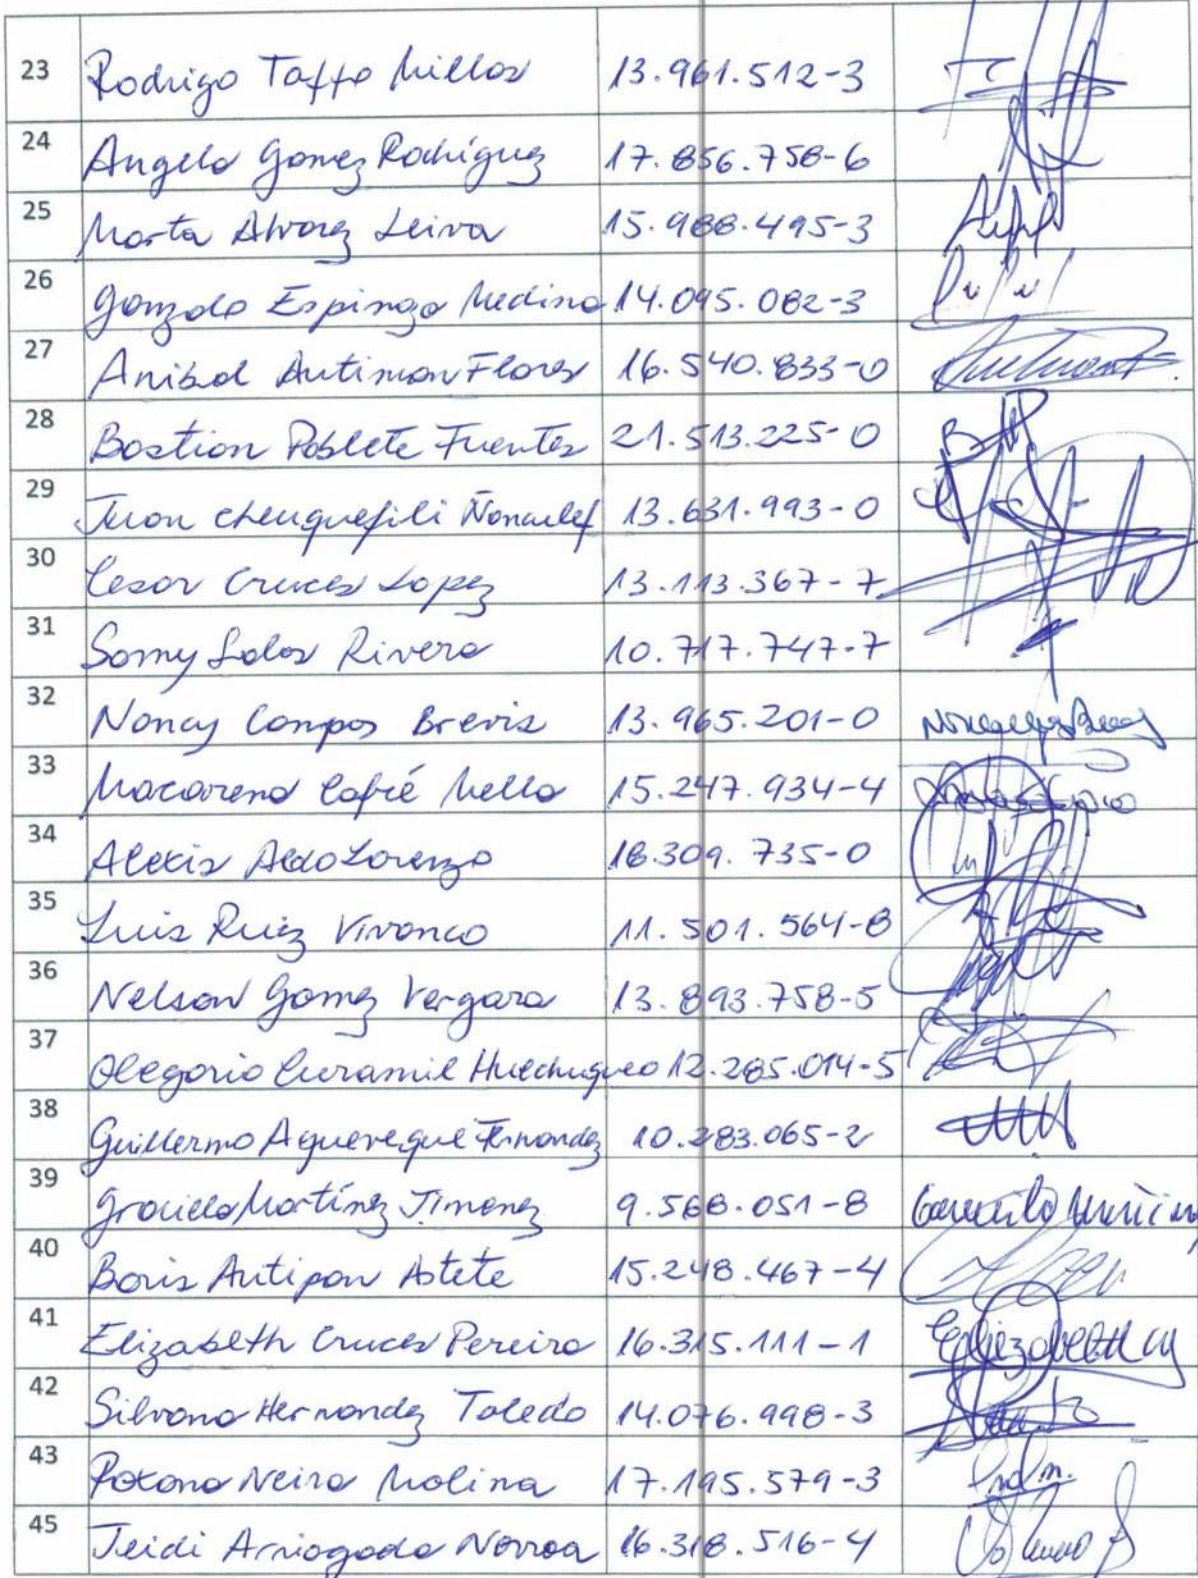 23 Rodrigo Taffo Millas 13.961.512-3
24 Angelo Gomez Rodriguez 17.856.758-6
25 Marta Alvarez Leiva 15.988.495-3
26 Gonzalo Espinoza Medina 14.095.082-3
27 Anibal Antiman Flores 16.540.833-0
28 Bastian Poblete Fuentes 21.513.225-0
29 Juan cheuquefili Ñanculef 13.631.993-0
30 Cesar Cruces Lopez 13.113.367-7
31 Samy Salas Rivera 10.717.747-7
32 Nancy Campos Brevis 13.965.201-0
33 Macarena Cafié Mella 15.247.934-4
34 Alexis Aedo Lorenzo 18.309.735-0
35 Luis Ruiz Vivanco 11.501.564-8
36 Nelson Gomez Vergara 13.893.758-5
37 Olegario Curamil Huechuqueo 12.285.014-5
38 Guillermo Agueveque Fernandez 10.283.065-2
39 Graciela Martínez Jimenez 9.568.051-8
40 Boris Antipan Astete 15.248.467-4
41 Elizabeth Cruces Pereira 16.315.111-1 Elizabeth
42 Silvana Hernandez Toledo 14.076.998-3
43 Roxana Neira Molina 17.195.579-3
45 Jeidi Arriagada Novoa 16.318.516-4